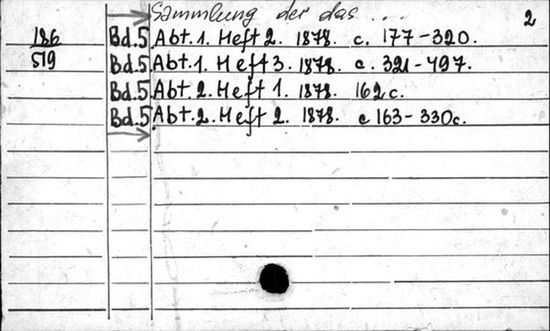 Sammlung der das ... 2
186 Bd.5 Abt.1. Heft 2. 1878. c. 177-320.
519 Bd.5 Abt.1. Heft 3. 1878. c. 321-497.
Bd.5 Abt.2. Heft 1. 1878. 162 c.
Bd.5 Abt.2. Heft 2. 1878. c 163-330c.